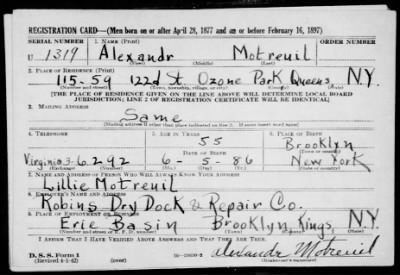 REGISTRATION CARD—(Men born on or after April 28, 1877 and on or before February 16, 1897)
SERIAL NUMBER 1. NAME (Print) ORDER NUMBER
U 1319 Alexandr Motreuil
(First) (Middle) (Last)
2. PLACE OF RESIDENCE (Print)
115-59 122d St. Ozone Park Queens N.Y.
(Number and street) (Town, township, village, or city) (County) (State)
[THE PLACE OF RESIDENCE GIVEN ON THE LINE ABOVE WILL DETERMINE LOCAL BOARD
JURISDICTION; LINE 2 OF REGISTRATION CERTIFICATE WILL BE IDENTICAL]
3. MAILING ADDRESS
Same
[Mailing address if other than place indicated on line 2. If same insert word same]
4. TELEPHONE 5. AGE IN YEARS 6. PLACE OF BIRTH
55 Brooklyn
DATE OF BIRTH
Virginia 3-6292 6-5-86 New York
7. NAME AND ADDRESS OF PERSON WHO WILL ALWAYS KNOW YOUR ADDRESS
Lillie Motreuil
8. EMPLOYER'S NAME AND ADDRESS
Robins Dry Dock & Repair Co.
9. PLACE OF EMPLOYMENT OR BUSINESS
Erie Basin Brooklyn, Kings, N.Y.
(Number and street or R. F. D. number) (Town) (County) (State)
I AFFIRM THAT I HAVE VERIFIED ABOVE ANSWERS AND THAT THEY ARE TRUE.
D. S. S. Form 1
(Revised 4-1-42) Alexandr Motreuil